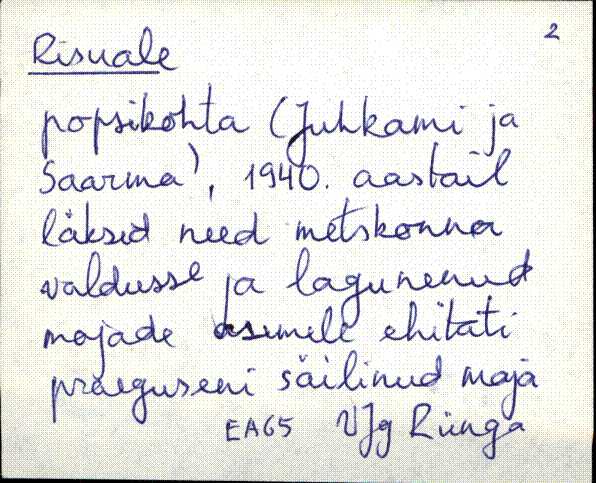 2
Risuale
popsikohta (Juhkami ja
Saarma), 1940. aastail
läksid need metskonna
valdusse ja lagunenud
majade asemele ehitati
praeguseni säilinud maja
EA65 VJg Riinga